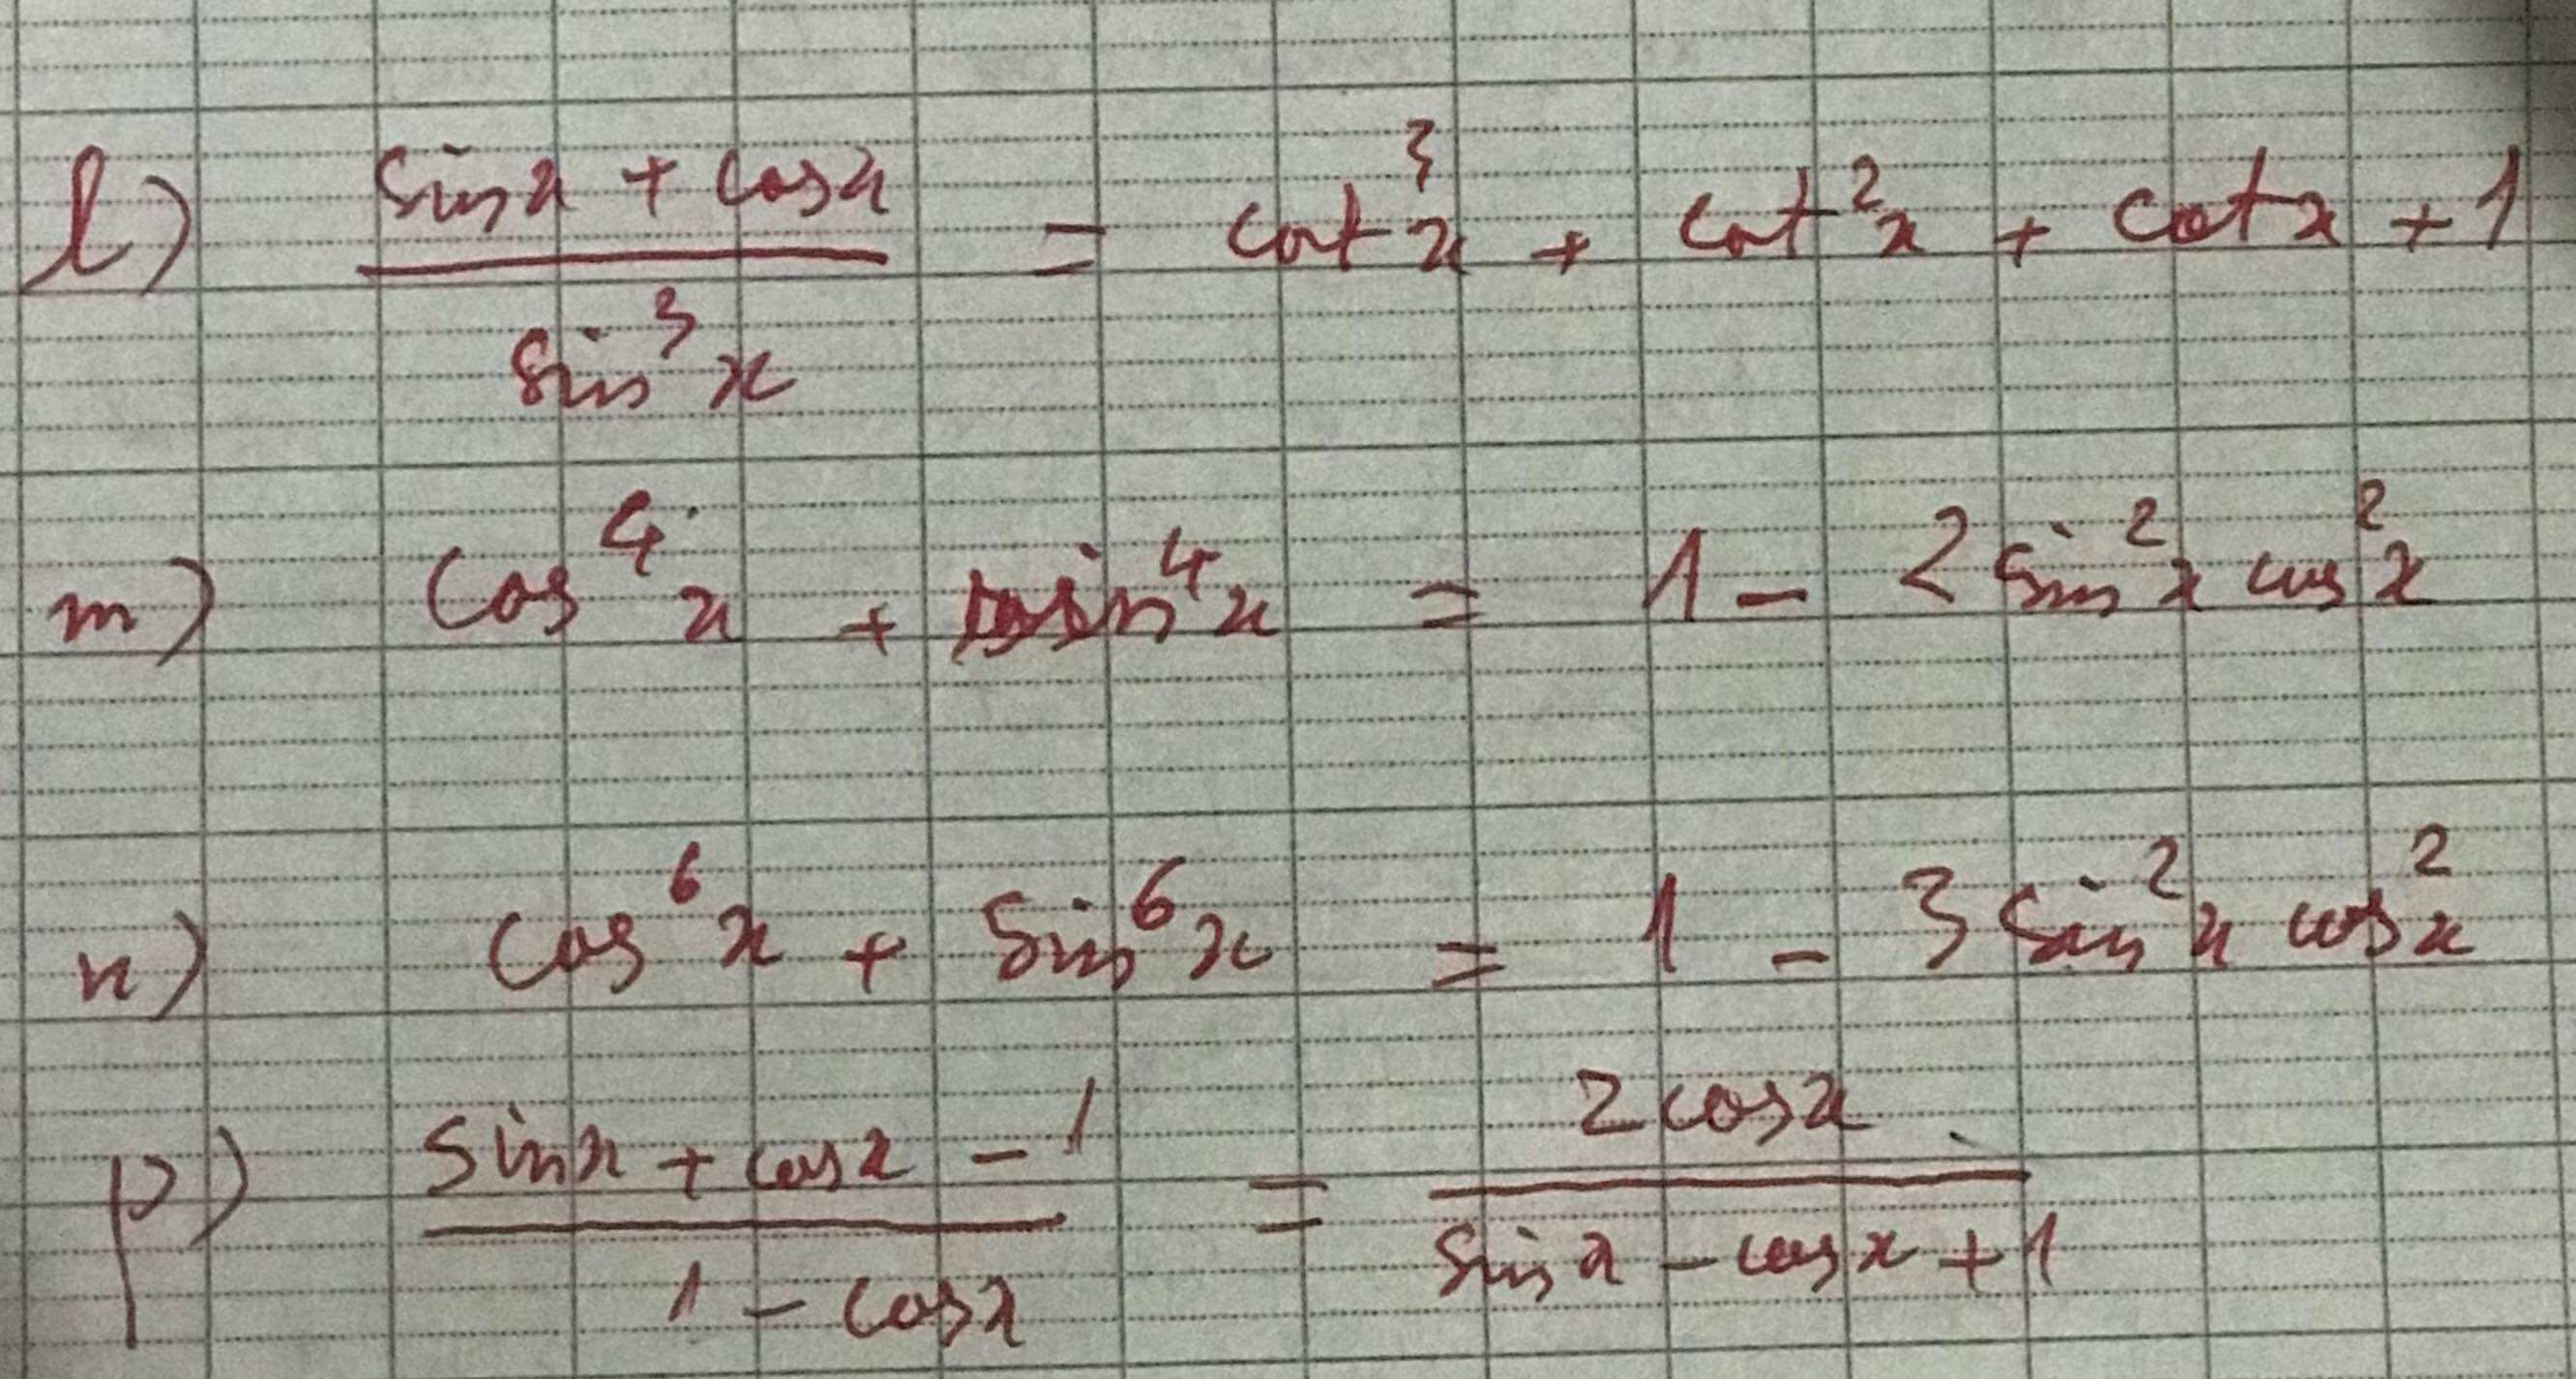 l) (sinx + cosx)/(sin³x) = cot³x + cot²x + cotx + 1
m) cos⁴x + sin⁴x = 1 - 2 sin²x cos²x
n) cos⁶x + sin⁶x = 1 - 3 sin²x cos²x
p) (sinx + cosx - 1)/(1 - cosx) = (2cosx)/(sinx - cosx + 1)